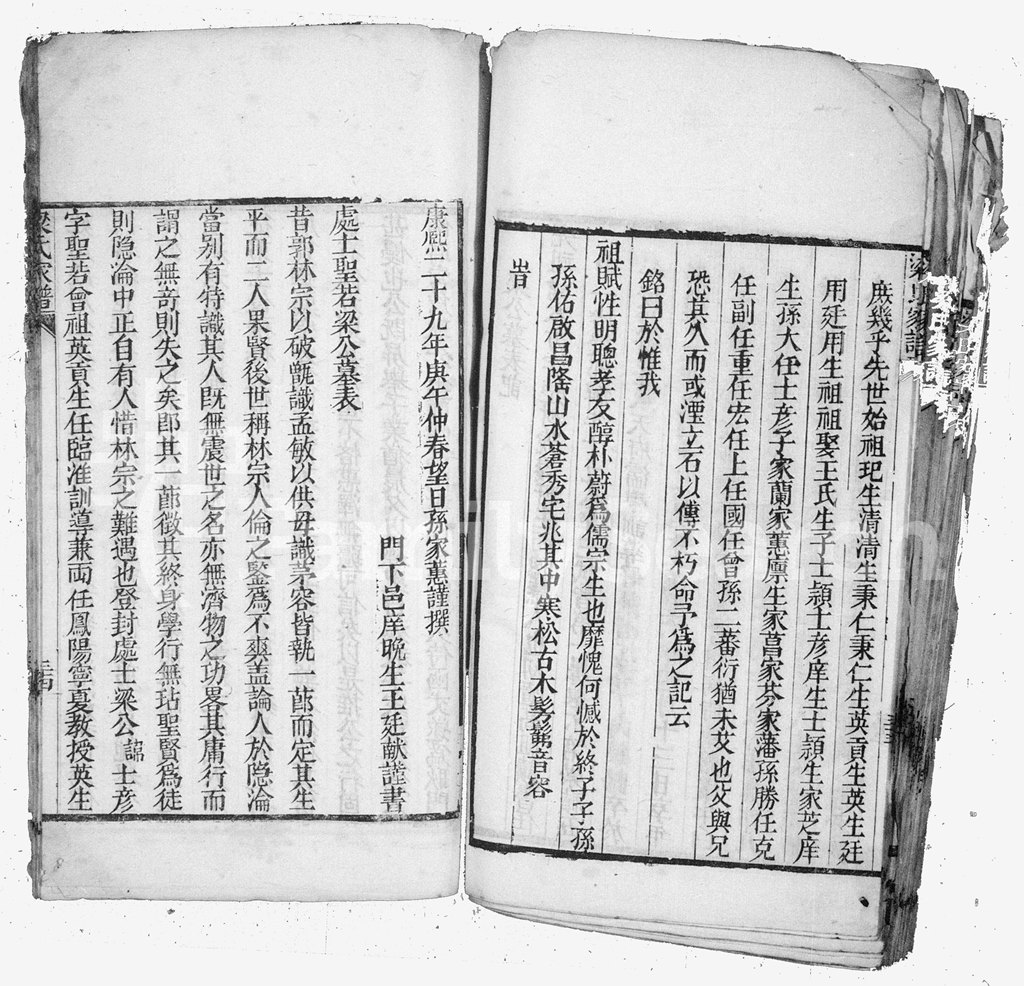 梁氏家譜
庶幾乎先世始祖玘生清清生秉仁秉仁生英貢生英生廷
用廷用生祖祖娶王氏生子士頴士彦庠生士頴生家芝庠
生孫大任士彦子家蘭家蕙廪生家菖家芬家藩孫勝任克
任副任重任宏任上任國任曾孫二蕃衍猶未艾也父與兄
恐其久而或湮立石以傳不朽命予為之記云
銘曰於惟我
祖賦性明聰孝友醇朴蔚為儒宗生也靡愧何憾於終子子孫
孫佑啟昌隆山水蒼秀宅兆其中寒松古木髣髴音容
旹
三三
康熙二十九年庚午仲春望日孫家蕙謹撰
門下邑庠晚生王廷献謹書
處士聖若梁公墓表
昔郭林宗以破甑識孟敏以供毋識茅容皆執一莭而定其生
平而二人果賢後世稱林宗人倫之鑒為不爽盖論人於隐淪
當别有特識其人既無震世之名亦無濟物之功畧其庸行而
謂之無竒則失之矣卽其一莭徵其終身學行無玷聖賢為徒
則隐淪中正自有人惜林宗之難遇也登封處士梁公諱士彦
字聖若曾祖英貢生任臨淮訓導兼両任鳳陽寧夏教授英生
梁氏家譜
三十四